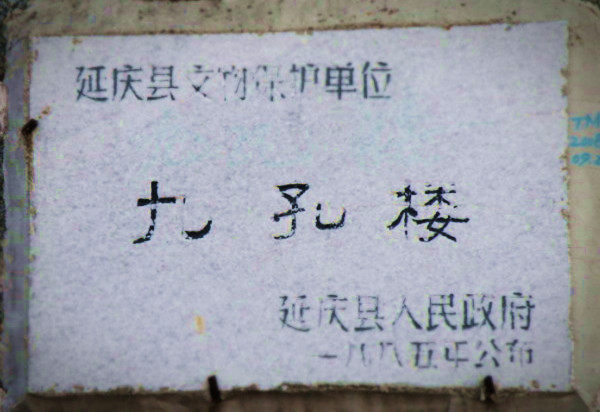 延庆县文物保护单位
九孔楼
延庆县人民政府
一九八五年公布
TM
2008